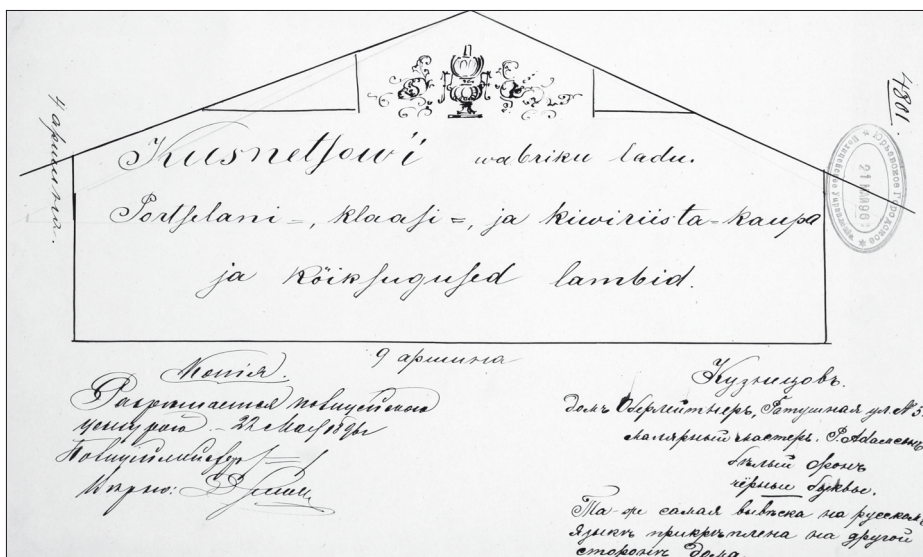 4801.
4 аршина.
Kusnetsowi wabriku ladu.
Portselani=, klaasi=, ja kiwiriista-kaupa
ja kõiksugused lambid.
9 аршина
Копія.
Разрешается полицейскою
цензурой. 22 Мая 1896 г
Полицмейстер
Верно:
Кузнецовъ.
Домъ Оберлейтнеръ, Ратушная ул. № 5.
малярный мастеръ. P. Adamson
бѣлый фронъ
чёрные буквы.
Та-же самая вывѣска на русскомъ
языкѣ прикрѣплена на другой
сторонѣ дома.